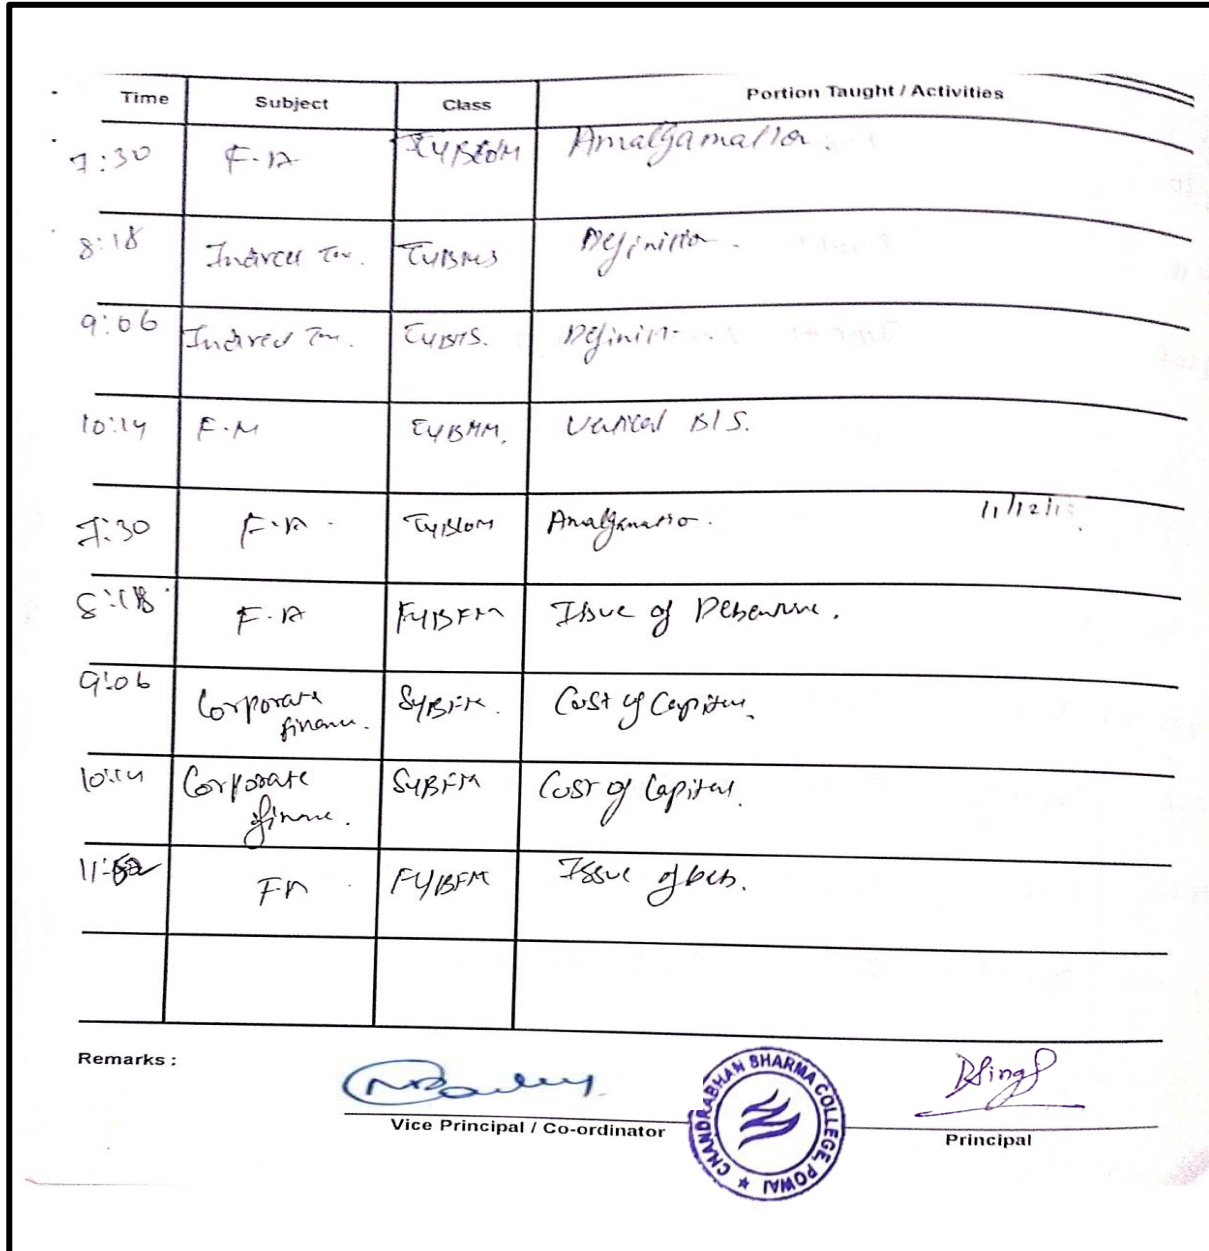 Time Subject Class Portion Taught / Activities
7:30 F.A TYBCOM Amalgamation.
8:18 Indirect Tax. TYBMS Definition.
9:06 Indirect Tax. Definition.
10:14 F.M TYBMM. Vertical B/S.
7:30 F.A. TYBCOM Amalgamatio.
8:18 F.A FYBFM Issue of Debenture.
9:06 Corporate finance. SYBFM. Cost of Capital.
10:14 Corporate finance. SYBFM Cost of Capital.
FA FYBFM Issue of Deb.
Remarks :
Vice Principal / Co-ordinator
CHANDRABHAN SHARMA COLLEGE, POWAI
Principal